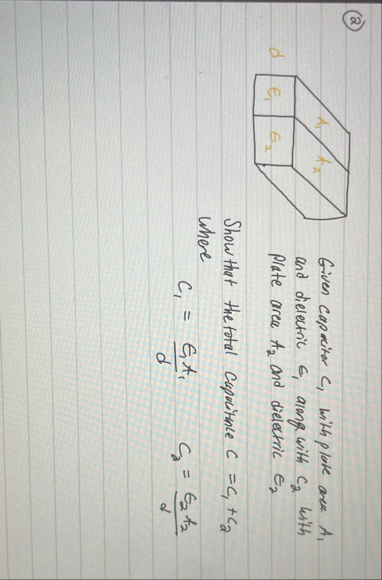 ②
Given capacitor C₁ with plate area A₁
and dielectric ϵ₁ along with C₂ with
plate area A₂ and dielectric ϵ₂
A₁ A₂
d ϵ₁ ϵ₂
Show that the total capacitance C = C₁ + C₂
where
C₁ = ϵ₁A₁/d C₂ = ϵ₂A₂/d